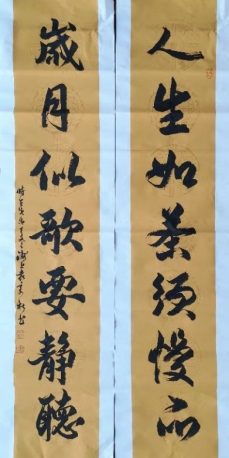 人生如茶须慢品
歲月似歌要静聽